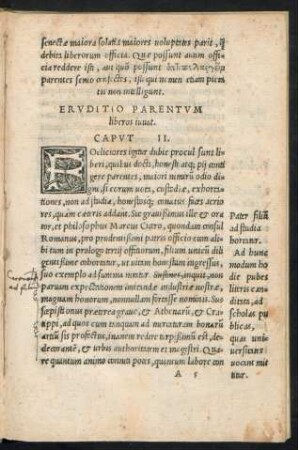 senectæ maiora solatia maiores voluptates parit, q̃
debita liberorum officia. Quæ possunt autem offi-
cia reddere isti, aut quò possunt
parentes senio confectos, isti qui nomen etiam pieta-
tis non intelligunt.
ERVDITIO PARENTVM
liberos iuuat.
CAPVT II.
FOeliciores igitur dubio procul sunt li-
beri, quibus docti, honesti atq; pij conti
gere parentes, maiori nimirū odio digni
ni, si eorum uotis, custodiæ, exhorta-
tiones, non ad studia, honestosq; conatus fiāt acrio-
res, quàm cæteri addant. Sic grauissimus ille & ora-
tor, et philosophus Marcus Cicero, quondam consul
Romanus, pro prudentissimi patris officio cum alibi
in omnibus tum in libris Officiorum, filium unicū de
honore, uirtute, autoritate, in quam hūc ingressus,
suo exemplo ad summa inuitat. Sustines, inquit, non
paruam expectationem imitandæ industriæ nostræ,
magnam honorum, nonnullam fortasse nominis. Sus
cæpisti onus præterea graue, & Athenarū, & Cra-
tippi, ad quos cum tanquam ad mercatum bonarū
artiū sis profectus, inanem redire turpissimū est, de-
decorantē, & urbis authoritatem et magistri. Qua-
re quantum animo conniti potes, quantum labore con
A 5
Pater filiū
ad studia
hortetur.
Ad hunc
modum ho
die pubes
littris can
didati, ad
scholas pu
blicas,
quas uni-
uersitates
uocant mit
titur.